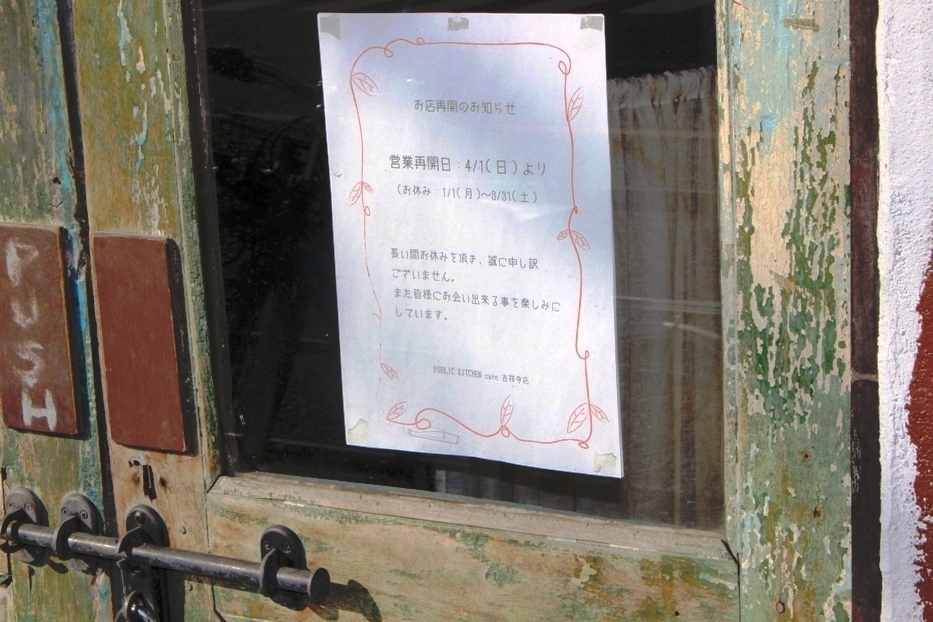 PUSH
お店再開のお知らせ
営業再開日：4/1(日)より
(お休み：1/1(月)～3/31(土)
長い間お休みを頂き、誠に申し訳
ございません。
また皆様にお会い出来る事を楽しみに
しています。
PUBLIC KITCHEN cafe 吉祥寺店